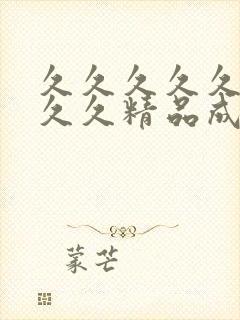 久久久久久
久久精品成
蒙芒